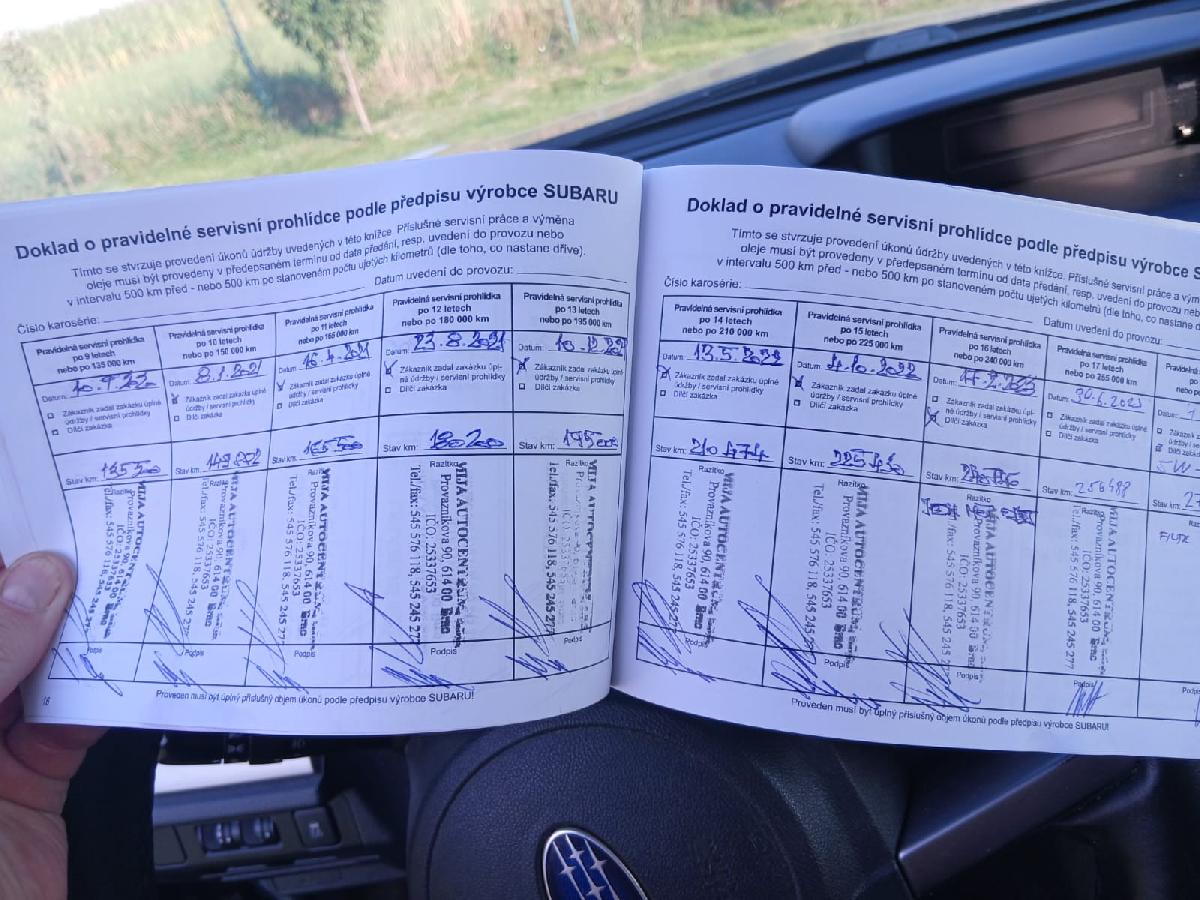 Doklad o pravidelné servisní prohlídce podle předpisu výrobce SUBARU
Tímto se stvrzuje provedení úkonů údržby uvedených v této knížce. Příslušné servisní práce a výměna
oleje musí být provedeny v předepsaném termínu od data předání, resp. uvedení do provozu nebo
v intervalu 500 km před - nebo 500 km po stanoveném počtu ujetých kilometrů (dle toho, co nastane dříve).
Číslo karosérie: Datum uvedení do provozu:
Pravidelná servisní prohlídka
po 9 letech
nebo po 135 000 km
Datum:
Zákazník zadal zakázku úplné
údržby / servisní prohlídky
Dílčí zakázka
Stav km:
Razítko
Tel./fax: 545 576 118, 545 245 277
Podpis
Pravidelná servisní prohlídka
po 10 letech
nebo po 150 000 km
Datum: 8.1.2021
Zákazník zadal zakázku úplné
údržby / servisní prohlídky
Dílčí zakázka
Stav km:
Razítko
Provazníkova 90, 614 00 Brno
IČO: 25337653
Tel./fax: 545 576 118, 545 245 277
Podpis
Pravidelná servisní prohlídka
po 11 letech
nebo po 165 000 km
Datum: 16.4.2021
Zákazník zadal zakázku úplné
údržby / servisní prohlídky
Dílčí zakázka
Stav km: 165 500
Razítko
Provazníkova 90, 614 00 Brno
IČO: 25337653
Tel./fax: 545 576 118, 545 245 277
Podpis
Pravidelná servisní prohlídka
po 12 letech
nebo po 180 000 km
Datum: 23.8.2021
Zákazník zadal zakázku úpl-
né údržby / servisní prohlídky
Dílčí zakázka
Stav km: 180 200
Razítko
Provazníkova 90, 614 00 Brno
IČO: 25337653
Tel./fax: 545 576 118, 545 245 277
Podpis
Pravidelná servisní prohlídka
po 13 letech
nebo po 195 000 km
Datum: 10.12.2021
Zákazník zadal zakázku úplné
údržby / servisní prohlídky
Dílčí zakázka
Stav km: 195 000
Razítko
Tel./fax: 545 576 118, 545 245 277
Podpis
16
Proveden musí být úplný příslušný objem úkonů podle předpisu výrobce SUBARU!
Doklad o pravidelné servisní prohlídce podle předpisu výrobce S
Tímto se stvrzuje provedení úkonů údržby uvedených v této knížce. Příslušné servisní práce a vým
oleje musí být provedeny v předepsaném termínu od data předání, resp. uvedení do provozu nebo
v intervalu 500 km před - nebo 500 km po stanoveném počtu ujetých kilometrů (dle toho, co nastane
Číslo karosérie: Datum uvedení do provozu:
Pravidelná servisní prohlídka
po 14 letech
nebo po 210 000 km
Datum: 13.5.2022
Zákazník zadal zakázku úplné
údržby / servisní prohlídky
Dílčí zakázka
Stav km: 210 474
Razítko
Provazníkova 90, 614 00 Brno
IČO: 25337653
Tel./fax: 545 576 118, 545 245 277
Podpis
Pravidelná servisní prohlídka
po 15 letech
nebo po 225 000 km
Datum: 4.10.2022
Zákazník zadal zakázku úplné
údržby / servisní prohlídky
Dílčí zakázka
Stav km: 225 430
Razítko
Provazníkova 90, 614 00 Brno
IČO: 25337653
Tel./fax: 545 576 118, 545 245 277
Podpis
Pravidelná servisní prohlídka
po 16 letech
nebo po 240 000 km
Datum:
Zákazník zadal zakázku úpl-
né údržby / servisní prohlídky
Dílčí zakázka
Stav km:
Razítko
Provazníkova 90, 614 00 Brno
IČO: 25337653
Tel./fax: 545 576 118, 545 245 277
Podpis
Pravidelná servisní prohlídka
po 17 letech
nebo po 255 000 km
Datum: 30.6.2023
Zákazník zadal zakázku
úplné údržby / servisní
prohlídky
Dílčí zakázka
Stav km: 256 488
Razítko
Provazníkova 90, 614 00 Brno
IČO: 25337653
Tel./fax: 545 576 118, 545 245 277
Podpis
Datum:
5W
Stav km:
FILTR
Proveden musí být úplný příslušný objem úkonů podle předpisu výrobce SUBARU!